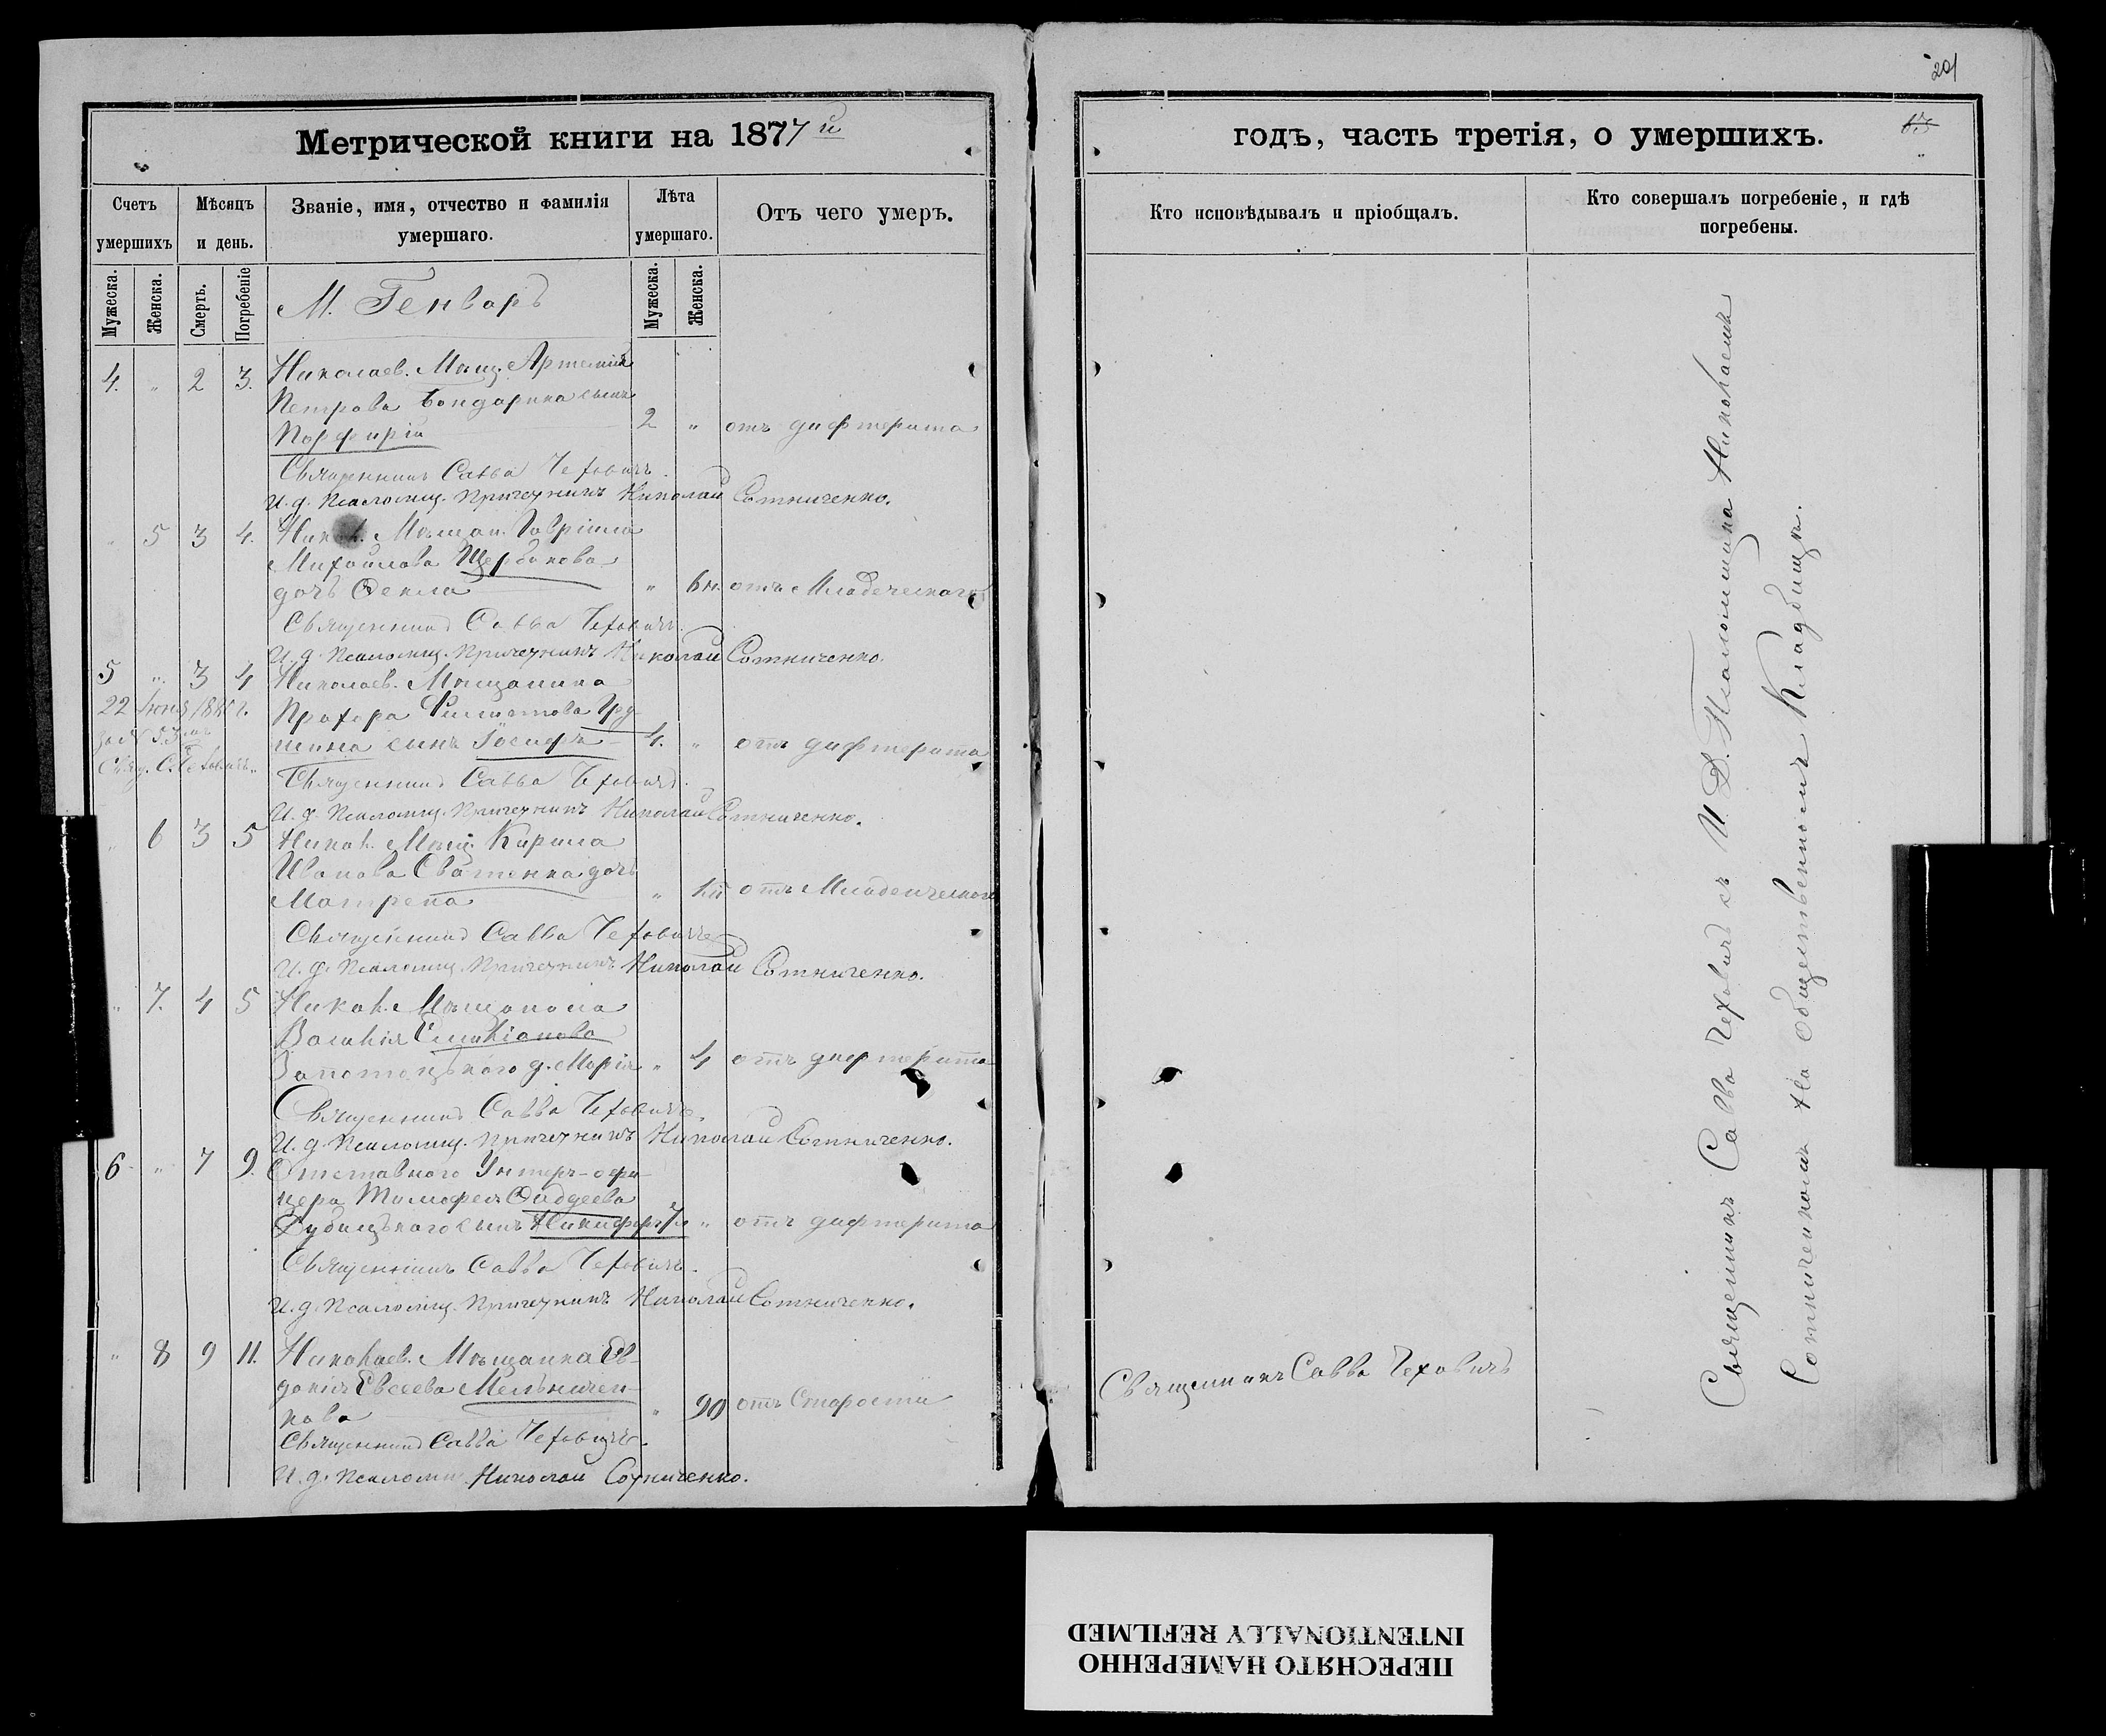 201
Метрической книги на 1877 й
годъ, часть третія, о умершихъ.
63
Счетъ умершихъ
Мѣсяцъ и день.
Званіе, имя, отчество и фамилія умершаго.
Лѣта умершаго.
Отъ чего умеръ.
Кто исповѣдывалъ и пріобщалъ.
Кто совершалъ погребеніе, и гдѣ погребены.
Мужеска.
Женска.
Смерть.
Погребеніе
Мужеска.
Женска.
М. Генварь
4. " 2 3. Николаев. Мѣщ. Артемія
Петрова Бондарика сынъ
Порфирій 2 " отъ дифтерита
Священникъ Савва Чеховичъ.
И. д. Псаломщ. Причетникъ Николай Сотниченко.
" 5 3 4. Никол. Мѣщан. Гавріила
Михайлова Щербакова
дочь Фекла " 6 н. отъ Младенческаго
Священникъ Савва Чеховичъ.
И. д. Псаломщ. Причетникъ Николай Сотниченко.
5 " 3 4 Николаев. Мѣщанина
22 Іюня
Прохора Филиппова
сынъ Іосифъ 4. " отъ дифтерита
Свящ. С. Чеховичъ.
Священникъ Савва Чеховичъ.
И. д. Псаломщ. Причетникъ Николай Сотниченко.
" 6 3 5 Никол. Мѣщ. Кирила
Иванова Сватенка дочь
Матрена " отъ Младенческаго
Священникъ Савва Чеховичъ
И. д. Псаломщ. Причетникъ Николай Сотниченко.
" 7. 4 5 Никол. Мѣщанина
Василія Емиліанова
Запотоцькаго д. Марія " 4 отъ дифтерита
Священникъ Савва Чеховичъ.
И. д. Псаломщ. Причетникъ Николай Сотниченко.
6 " 7 9. Отставного Унтеръ-офи-
цера Тимофея Фаддеева
Дубицькаго сынъ Никифоръ 7 " отъ дифтерита
Священникъ Савва Чеховичъ.
И. д. Псаломщ. Причетникъ Николай Сотниченко.
" 8 9 11. Николаев. Мѣщанка Ев-
докія Евсеева Мельничен-
кова " 90 отъ Старости
Священникъ Савва Чеховичъ.
И. д. Псаломщ. Николай Сотниченко.
Священникъ Савва Чеховичъ
Священникъ Савва Чеховичъ съ И. Д. Псаломщика Николаемъ
Сотниченкомъ на Общественномъ Кладбищѣ.
ПЕРЕСНЯТО НАМЕРЕННО
INTENTIONALLY REFILMED